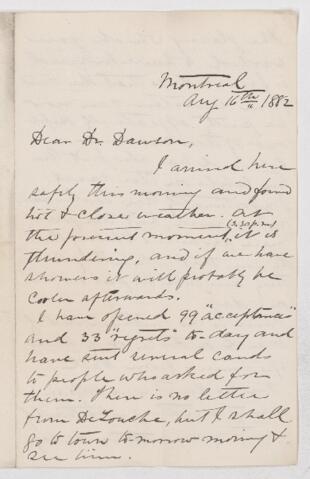 Montreal
Aug 16th 1882
Dear Dr. Dawson,
I arrived here
safely this morning and found
hot & close weather. At
the present moment (3.30 p.m.) it is
thundering, and if we have
showers it will probably be
cooler afterwards.
I have opened 99 "acceptances"
and 33 "regrets" to-day and
have sent several cards
to people who asked for
them. There is no letter
from DeLouche, but I shall
go to town to-morrow morning &
see him.